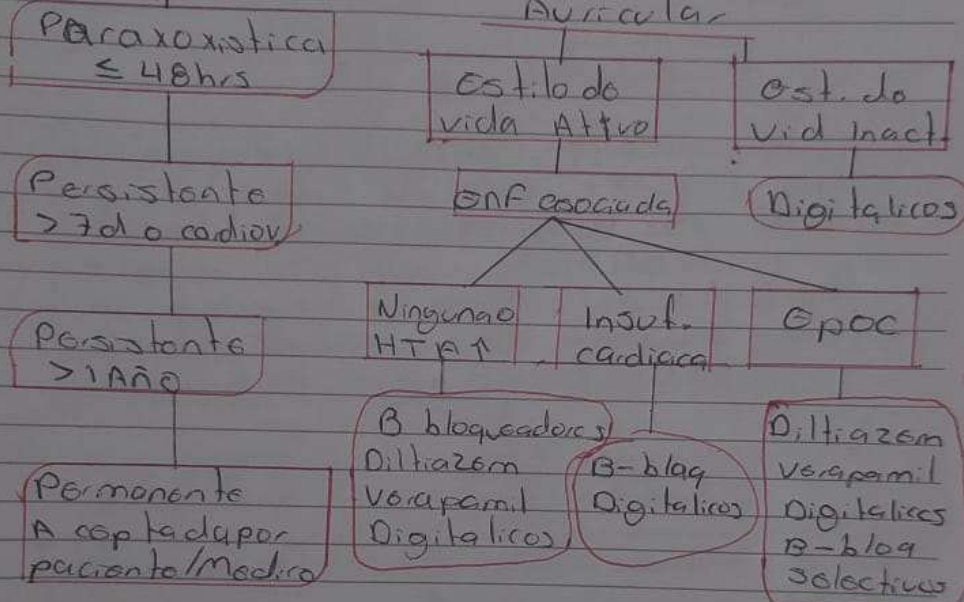 Paraxoxistica
≤ 48hrs
Persistente
> 7d o cardiov
Persistente
> 1 Año
Permanente
Aceptada por
paciente/Medico
Auricular
Estilo de
vida Attvo
Est. de
Vid Inact.
Enf asociada
Digitalicos
Ninguna o
HTA↑
Insuf.
cardiaca
Epoc
B bloqueadores
Diltiazem
Verapamil
Digitalicos
B-bloq
Digitalicos
Diltiazem
Verapamil
Digitalicos
B-bloq
selectivos